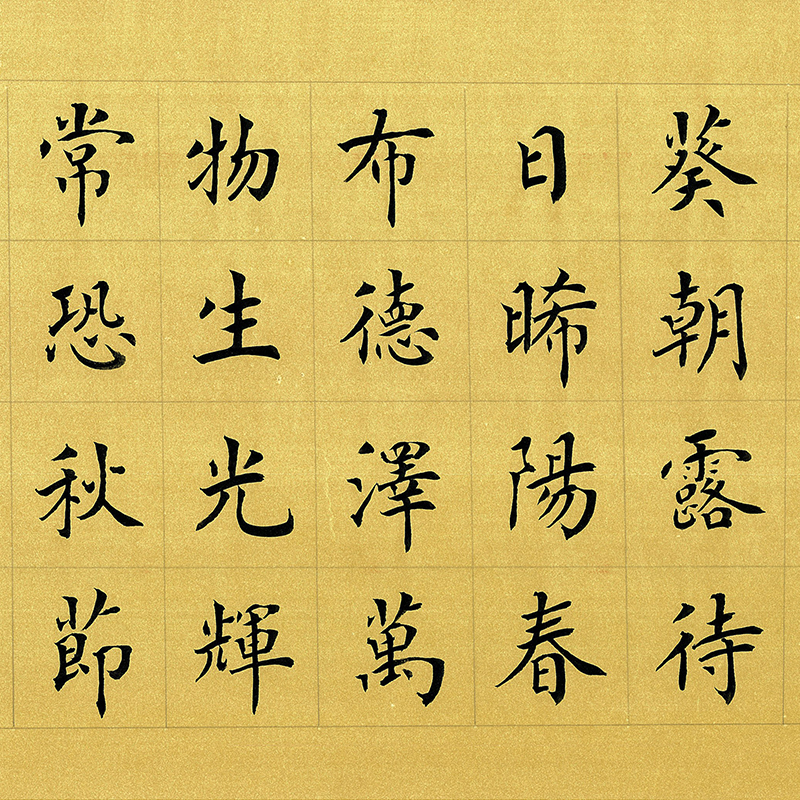 葵朝露待
日晞陽春
布德澤萬
物生光輝
常恐秋節